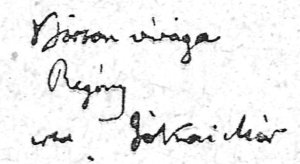 Börtön virága
Regény
irta Jókai Mór